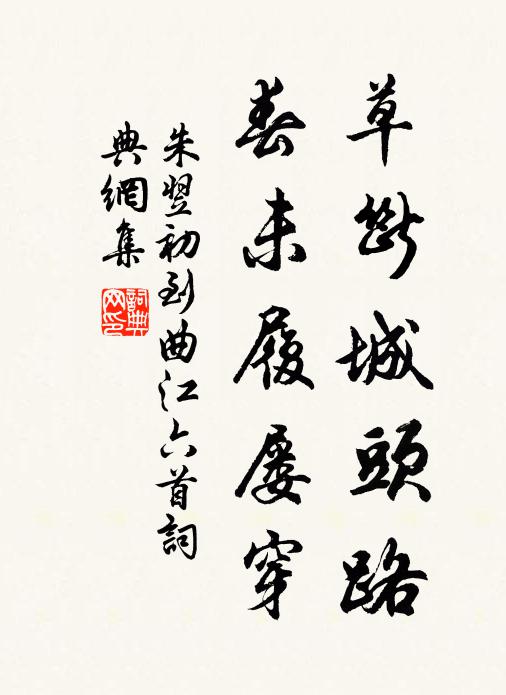 草断城頭路
春未履屡穿
朱翌初到曲江六首詞
典網集
詞典
网印